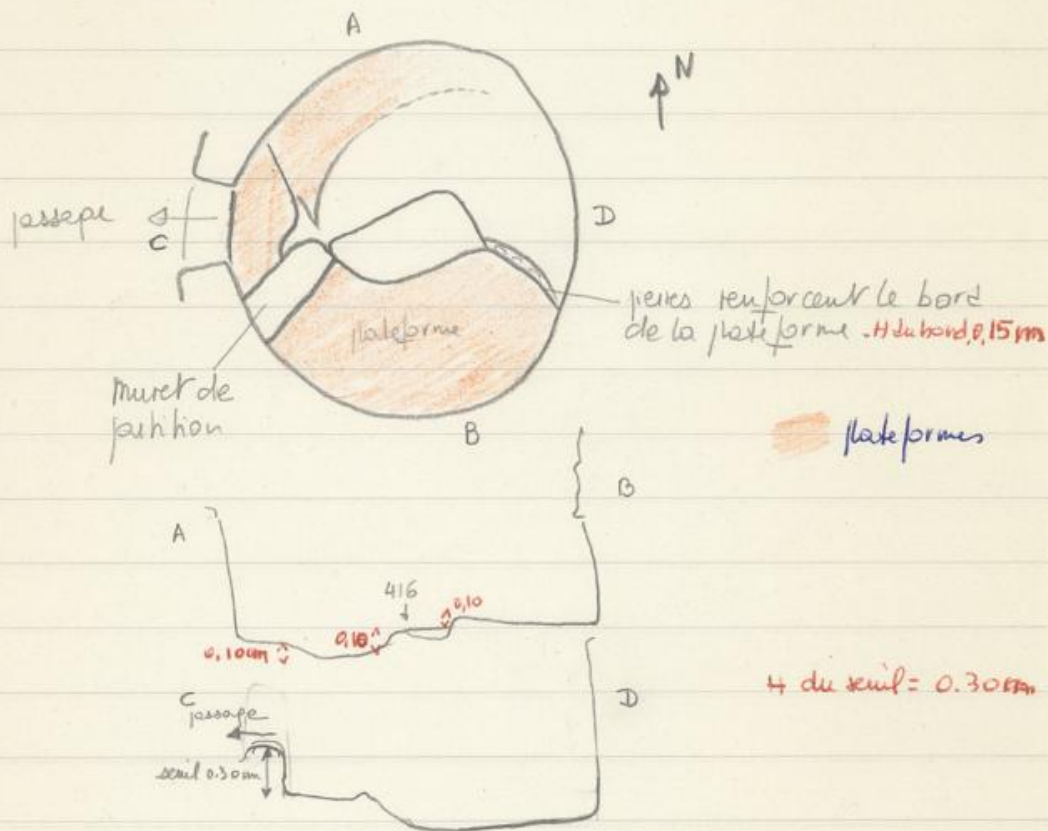 A
N
passage
C
D
pierres renforcent le bord
de la plateforme. H du bord, 0,15 m
plateforme
muret de
partition
B
plateformes
B
A
416
0,10
0,10
0,10 m
H du seuil = 0.30 m
C
passage
D
seuil 0.30 m